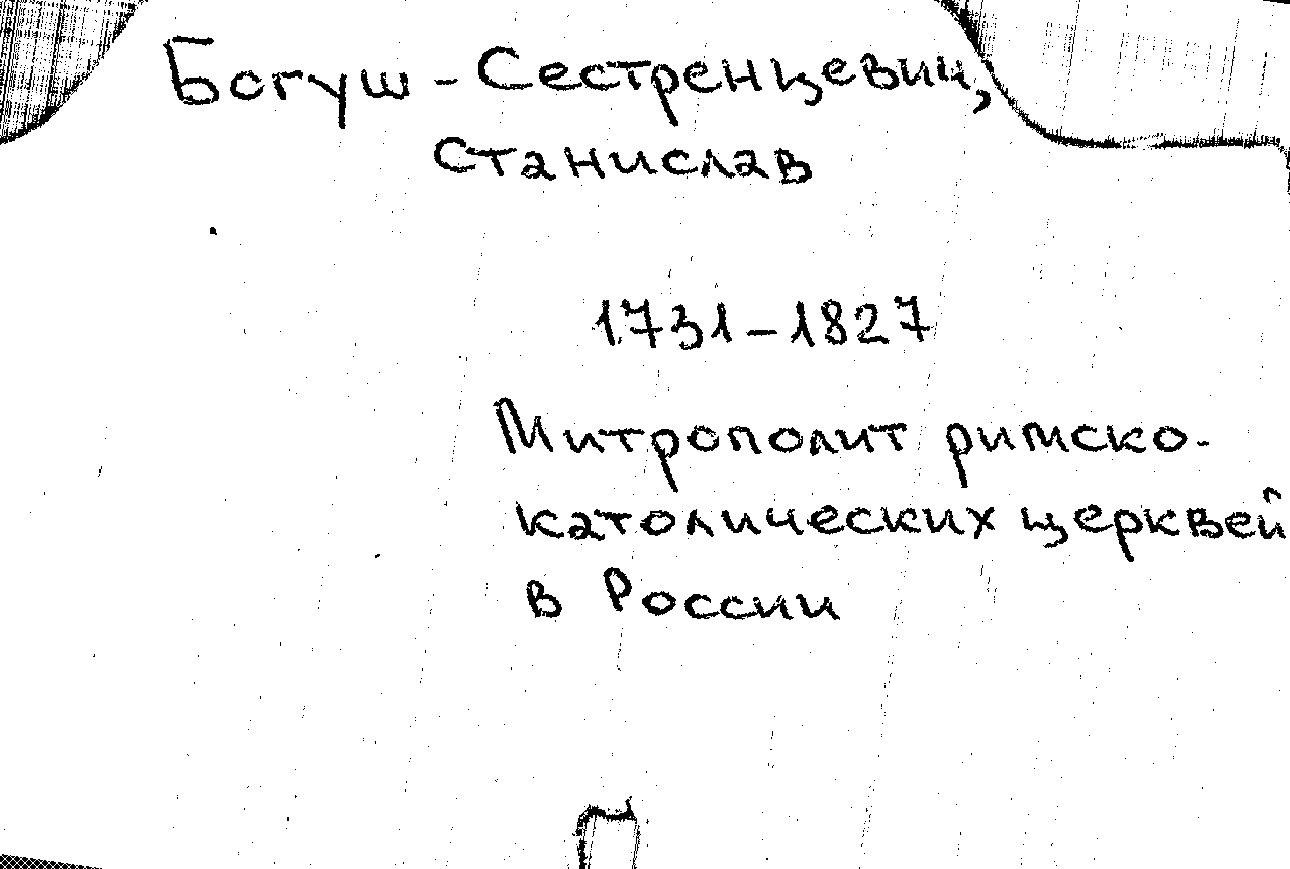 Богуш-Сестренцевич,
Станислав
1731-1827
Митрополит римско-
католических церквей
в России